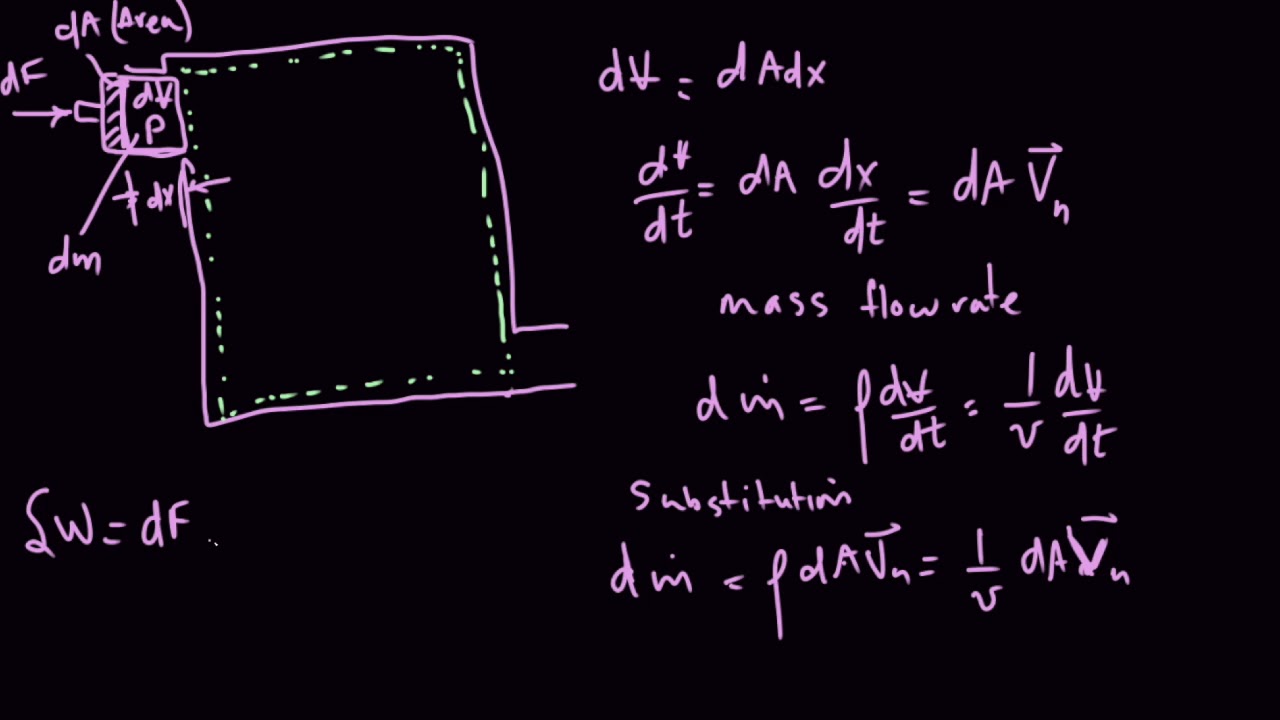 dA (Area)
dF
dV
P
dx
dm
dV = dA dx
dV/dt = dA dx/dt = dA V⃗n
mass flow rate
dṁ = ρ dV/dt = 1/v dV/dt
Substitution
dṁ = ρ dA V⃗n = 1/v dA V⃗n
δW = dF